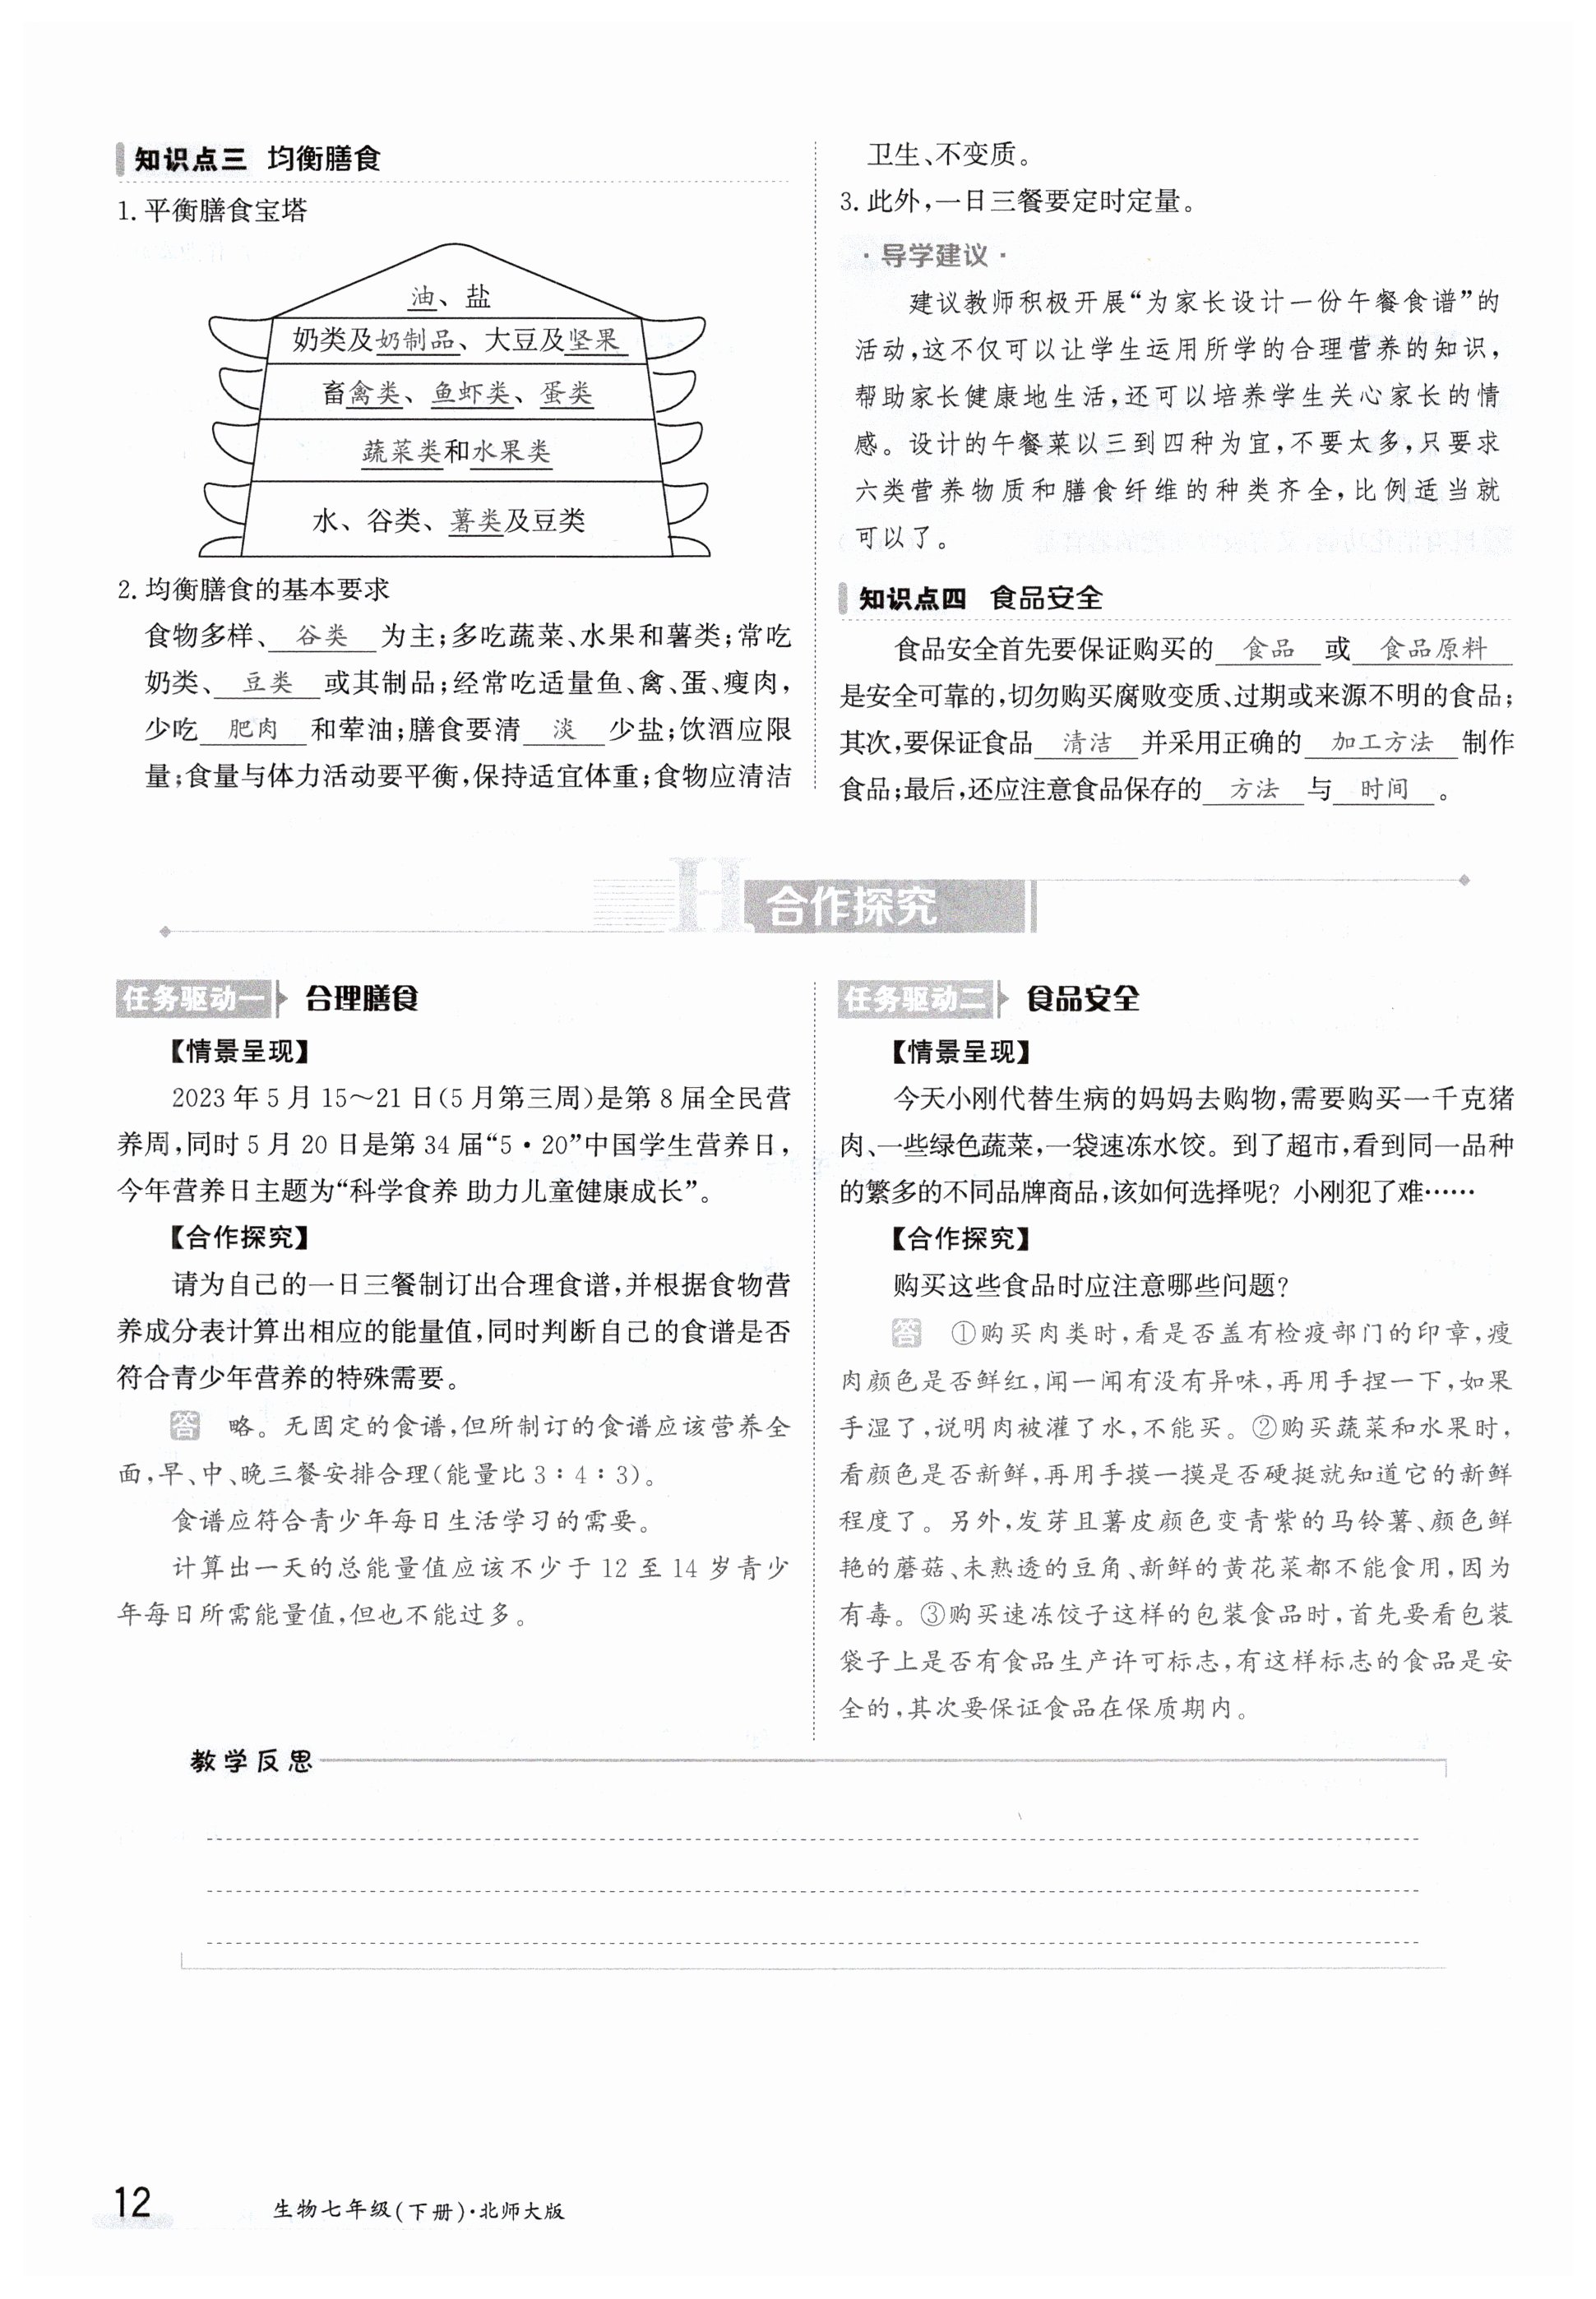 知识点三 均衡膳食
1. 平衡膳食宝塔
油、盐
奶类及奶制品、大豆及坚果
畜禽类、鱼虾类、蛋类
蔬菜类和水果类
水、谷类、薯类及豆类
2. 均衡膳食的基本要求
食物多样、谷类为主;多吃蔬菜、水果和薯类;常吃
奶类、豆类或其制品;经常吃适量鱼、禽、蛋、瘦肉,
少吃肥肉和荤油;膳食要清淡少盐;饮酒应限
量;食量与体力活动要平衡,保持适宜体重;食物应清洁
卫生、不变质。
3. 此外,一日三餐要定时定量。
·导学建议·
建议教师积极开展“为家长设计一份午餐食谱”的
活动,这不仅可以让学生运用所学的合理营养的知识,
帮助家长健康地生活,还可以培养学生关心家长的情
感。设计的午餐菜以三到四种为宜,不要太多,只要求
六类营养物质和膳食纤维的种类齐全,比例适当就
可以了。
知识点四 食品安全
食品安全首先要保证购买的食品或食品原料
是安全可靠的,切勿购买腐败变质、过期或来源不明的食品;
其次,要保证食品清洁并采用正确的加工方法制作
食品;最后,还应注意食品保存的方法与时间。
H 合作探究
任务驱动一 合理膳食
【情景呈现】
2023年5月15~21日(5月第三周)是第8届全民营
养周,同时5月20日是第34届“5·20”中国学生营养日,
今年营养日主题为“科学食养 助力儿童健康成长”。
【合作探究】
请为自己的一日三餐制订出合理食谱,并根据食物营
养成分表计算出相应的能量值,同时判断自己的食谱是否
符合青少年营养的特殊需要。
答 略。无固定的食谱,但所制订的食谱应该营养全
面,早、中、晚三餐安排合理(能量比3∶4∶3)。
食谱应符合青少年每日生活学习的需要。
计算出一天的总能量值应该不少于12至14岁青少
年每日所需能量值,但也不能过多。
任务驱动二 食品安全
【情景呈现】
今天小刚代替生病的妈妈去购物,需要购买一千克猪
肉、一些绿色蔬菜,一袋速冻水饺。到了超市,看到同一品种
的繁多的不同品牌商品,该如何选择呢?小刚犯了难……
【合作探究】
购买这些食品时应注意哪些问题?
答 ①购买肉类时,看是否盖有检疫部门的印章,瘦
肉颜色是否鲜红,闻一闻有没有异味,再用手捏一下,如果
手湿了,说明肉被灌了水,不能买。②购买蔬菜和水果时,
看颜色是否新鲜,再用手摸一摸是否硬挺就知道它的新鲜
程度了。另外,发芽且薯皮颜色变青紫的马铃薯、颜色鲜
艳的蘑菇、未熟透的豆角、新鲜的黄花菜都不能食用,因为
有毒。③购买速冻饺子这样的包装食品时,首先要看包装
袋子上是否有食品生产许可标志,有这样标志的食品是安
全的,其次要保证食品在保质期内。
教学反思
12
生物七年级(下册)·北师大版